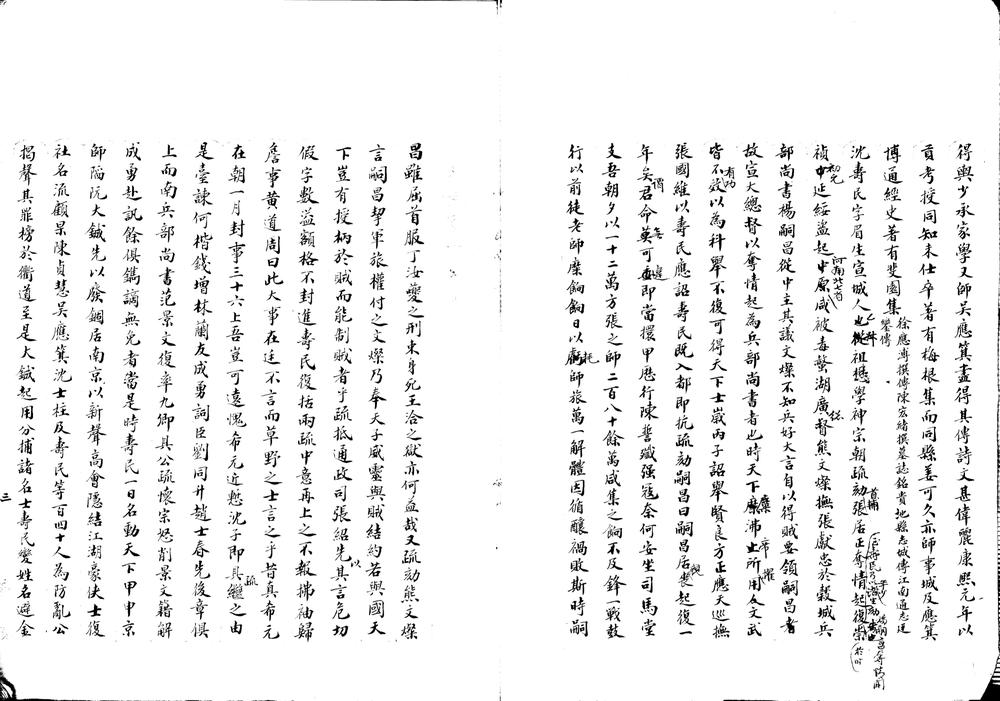 得輿少承家學又師吳應箕盡得其傳詩文甚偉麗康熙元年以
貢考授同知未仕卒著有梅根集而同縣姜可久亦師事城及應箕
博通經史著有斐園集
徐應濤撰傳陳宏緒撰墓誌銘貴池縣志城傳江南通志逆
沈壽民字眉生宣城人也祖懋學神宗朝疏劾張居正奪情起復崇
禎中延綏盜起中原咸被毒螫湖廣督熊文燦撫張獻忠於穀城兵
部尚書楊嗣昌從中主其議文燦不知兵好大言自以得賊要領嗣昌者
故宣大總督以奪情起為兵部尚書者也時天下糜沸所用文武
皆不效以為科舉不復可得天下士歲丙子詔舉賢良方正應天巡撫
張國維以壽民應詔壽民既入都即抗疏劾嗣昌曰嗣昌居喪起復一
年矣君命莫可即當擐甲歷行陳誓殲强寇奈何安坐司馬堂
支吾朝夕以一十二萬方張之師二百八十餘萬咸集之餉不反鋒一戰鼓
行以前徒老師糜餉餉日以虧師旅萬一解體因循釀禍敗斯時嗣
昌雖屈首服丁汝夔之刑束身死王洽之獄亦何益哉又疏劾熊文燦
言嗣昌挈軍旅權付之文燦乃奉天子威靈與賊結約若與國天
下豈有授柄於賊而能制賊者乎疏抵通政司張紹先其言危切
假字數溢額格不封進壽民復括兩疏中意再上之不報拂袖歸
詹事黃道周曰此大事在廷不言而草野之士言之乎昔真希元
在朝一月封事三十六上吾豈可遠愧希元近慙沈子即具繼之由
是臺諫何楷錢增林蘭友成勇詞臣劉同升趙士春先後章俱
上而南兵部尚書范景文復率九卿具公疏懷宗怒削景文籍解
成勇赴訊餘俱鐫謫無免者當是時壽民一日名動天下甲申京
師陷阮大鋮先以廢錮居南京以新聲高會隱結江湖豪俠士復
社名流顧杲陳貞慧吳應箕沈士柱及壽民等百四十人為防亂公
揭聲其罪榜於衢道至是大鋮起用分捕諸名士壽民變姓名避金
三